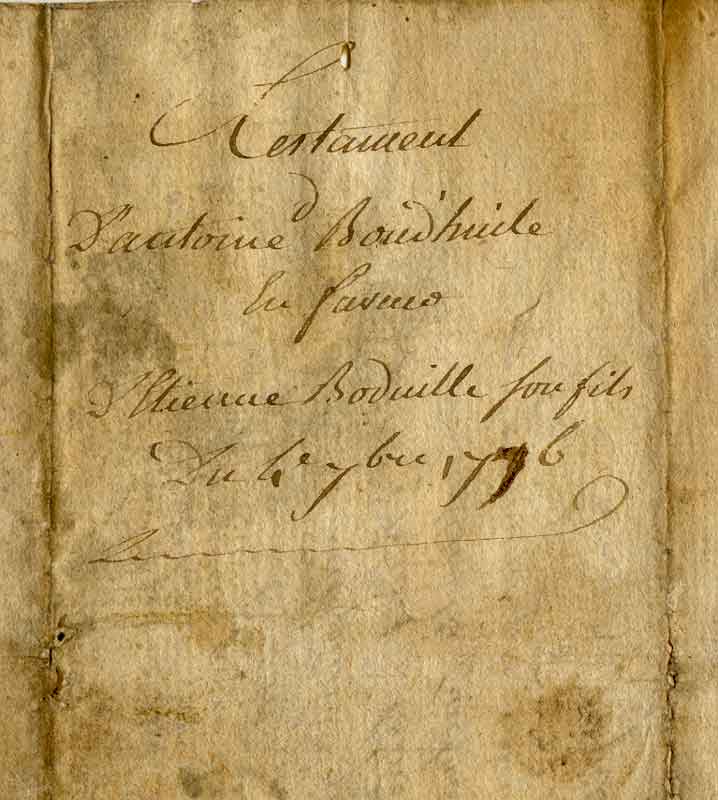 Testament
D'antoine Boüd'huile
En faveur
D'Etienne Boduille son fils
Du 4e 7bre 1776